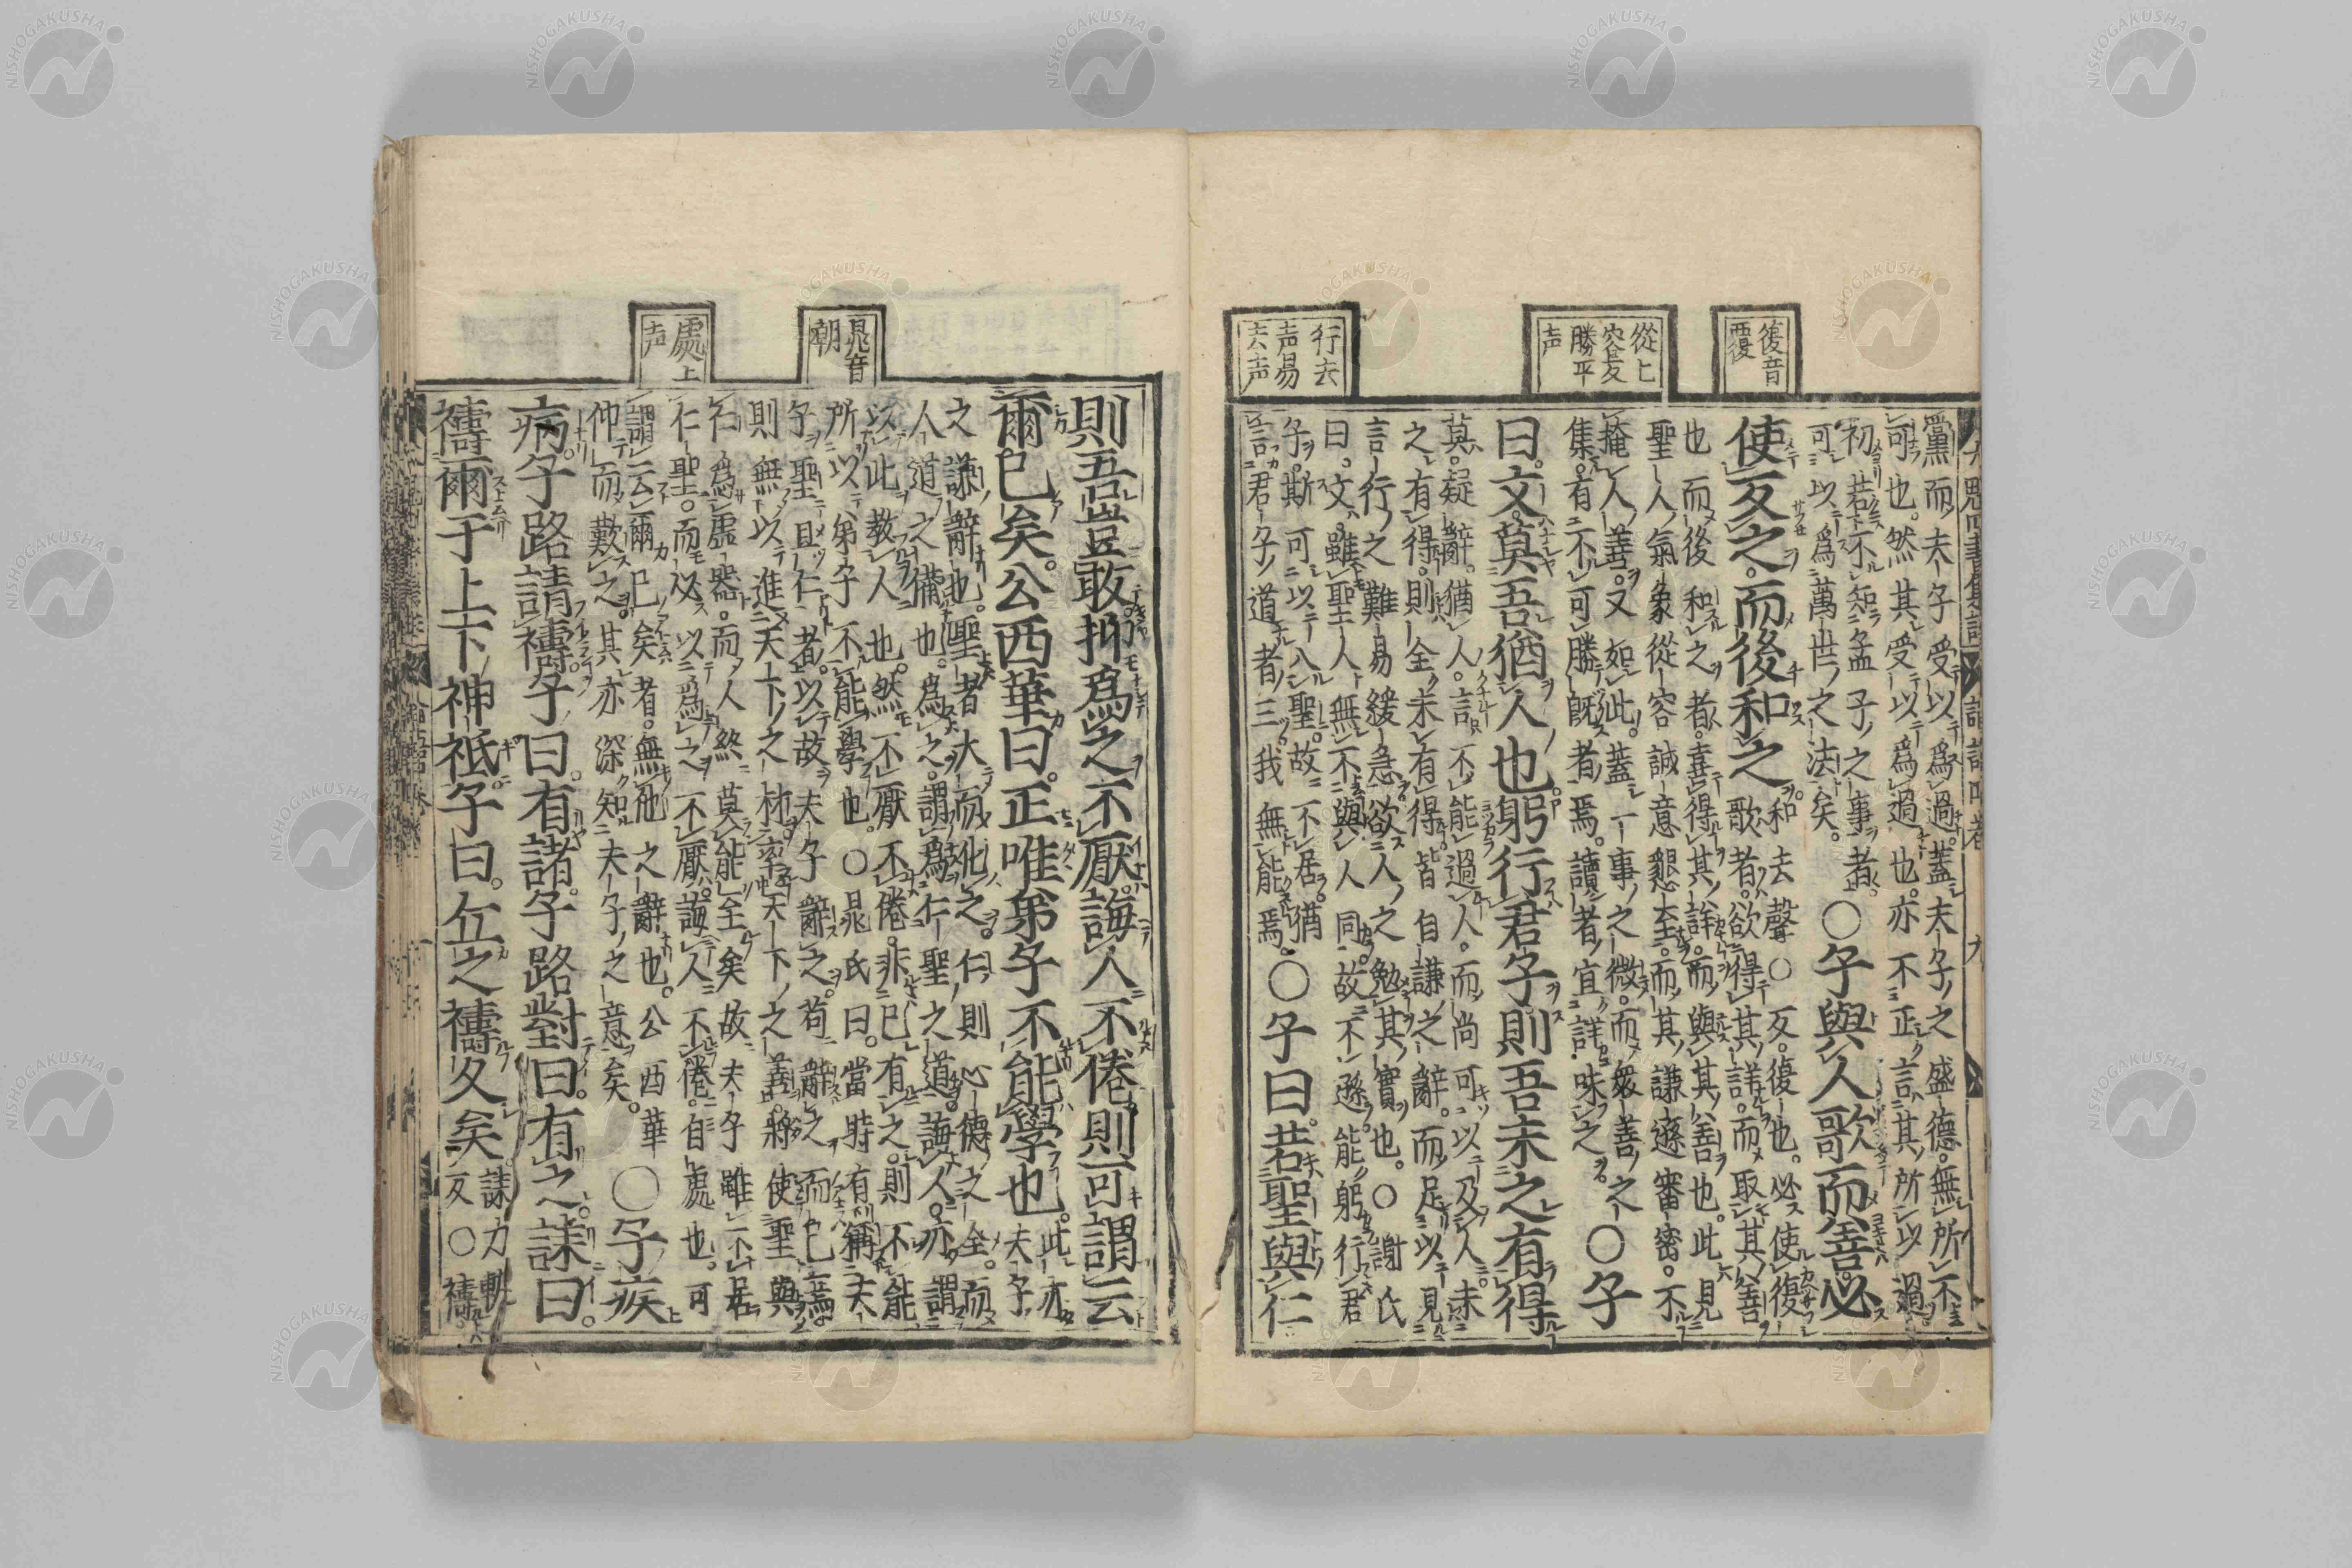 復音
覆
從七
容反
勝平
声
行去
声易
去声
大魁四書集註 論語四卷 九
黨而夫子受以爲過。蓋夫子之盛德。無所不
可也。然其受以爲過也。亦不正言其所以過。
初若不知孟子之事者。
可以爲萬世之法矣。
○子與人歌而善。必
使反之。而後和之
和去聲○反。復也。必使復
歌者。欲得其詳。而取其善
也而後和之者。喜得其詳。而與其善也。此見
聖人氣象從容誠意懇至。而其謙遜審密。不
掩人善。又如此。蓋一事之微。而衆善之
集。有不可勝既者焉。讀者宜詳味之。
○子
曰。文。莫吾猶人也。躬行君子。則吾未之有得
莫。疑辭。猶人。言不能過人。而尚可以及人。未
之有得。則全未有得。皆自謙之辭。而足以見
言行之難易緩急。欲人之勉其實也。○謝氏
曰。文。雖聖人無不與人同。故不遜。能躬行君
子。斯可以入聖。故不居。猶
言君子道者三我無能焉。
○子曰。若聖與仁
晁音
朝
處上
声
則吾豈敢抑爲之不厭。誨人不倦。則可謂云
爾已矣。公西華曰。正唯弟子不能學也。
此亦
夫子
之謙辭也。聖者大而化之。仁則心德之全。而
人道之備也。爲之。謂爲仁聖之道。誨人。亦謂
以此教人也。然不厭不倦。非已有之。則不能
所以弟子不能學也。○晁氏曰。當時有稱夫
子聖且仁者。以故夫子辭之。苟辭之而已焉。
則無以進天下之材率天下之善。將使聖與
仁爲虛器。而人終莫能至矣故夫子雖不居
仁聖。而必以爲之不厭。誨人不倦。自處也。可
謂云爾已矣者。無他之辭也。公西華
仰而歎之。其亦深知夫子之意矣。
○子疾
病。子路請禱。子曰。有諸。子路對曰。有之。誄曰。
禱爾于上下神祇。子曰。丘之禱久矣
誄力軌
反○禱。